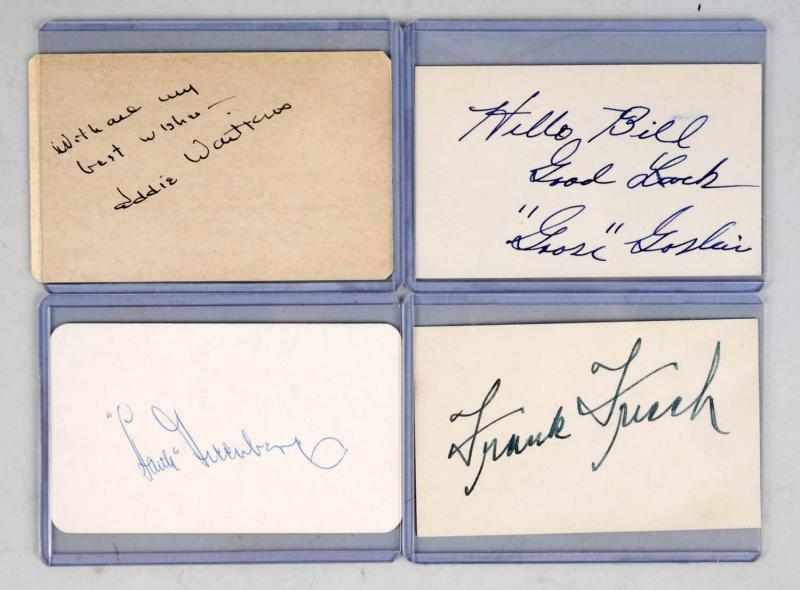 With all my
best wishes—
Eddie Waitkus
Hello, Bill
Good Luck
"Goose" Goslin
"Hank" Greenberg
Frank Frisch